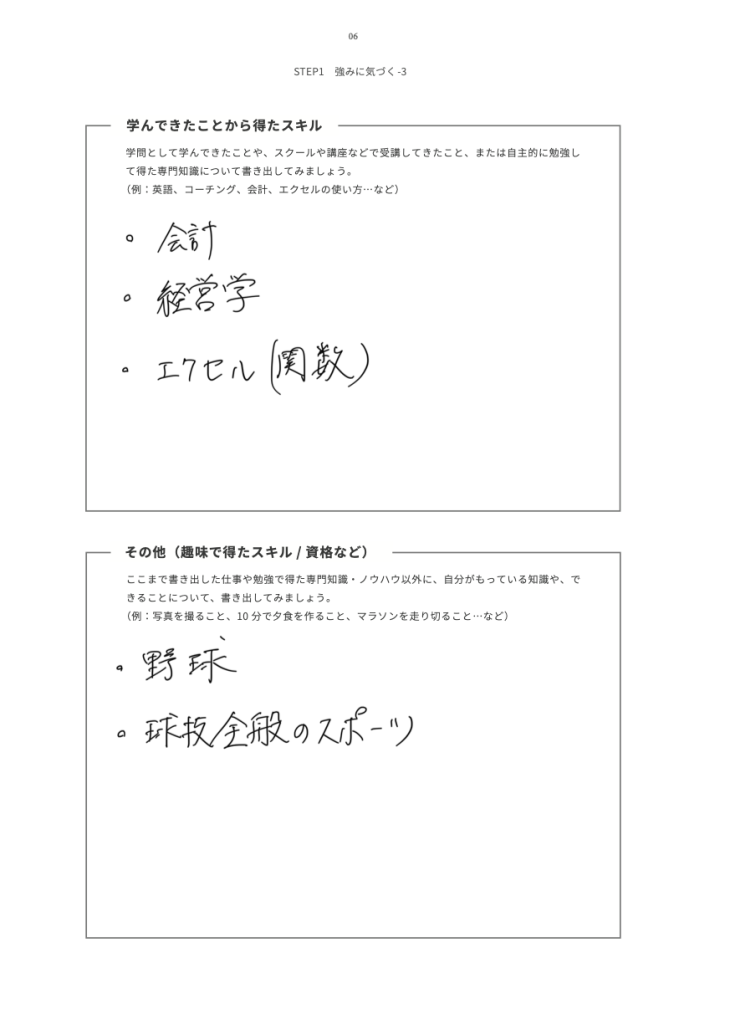 06
STEP1　強みに気づく-3
学んできたことから得たスキル
学問として学んできたことや、スクールや講座などで受講してきたこと、または自主的に勉強し
て得た専門知識について書き出してみましょう。
（例：英語、コーチング、会計、エクセルの使い方…など）
。会計
。経営学
。エクセル(関数)
その他（趣味で得たスキル / 資格など）
ここまで書き出した仕事や勉強で得た専門知識・ノウハウ以外に、自分がもっている知識や、で
きることについて、書き出してみましょう。
（例：写真を撮ること、10 分で夕食を作ること、マラソンを走り切ること…など）
。野球
。球技全般のスポーツ